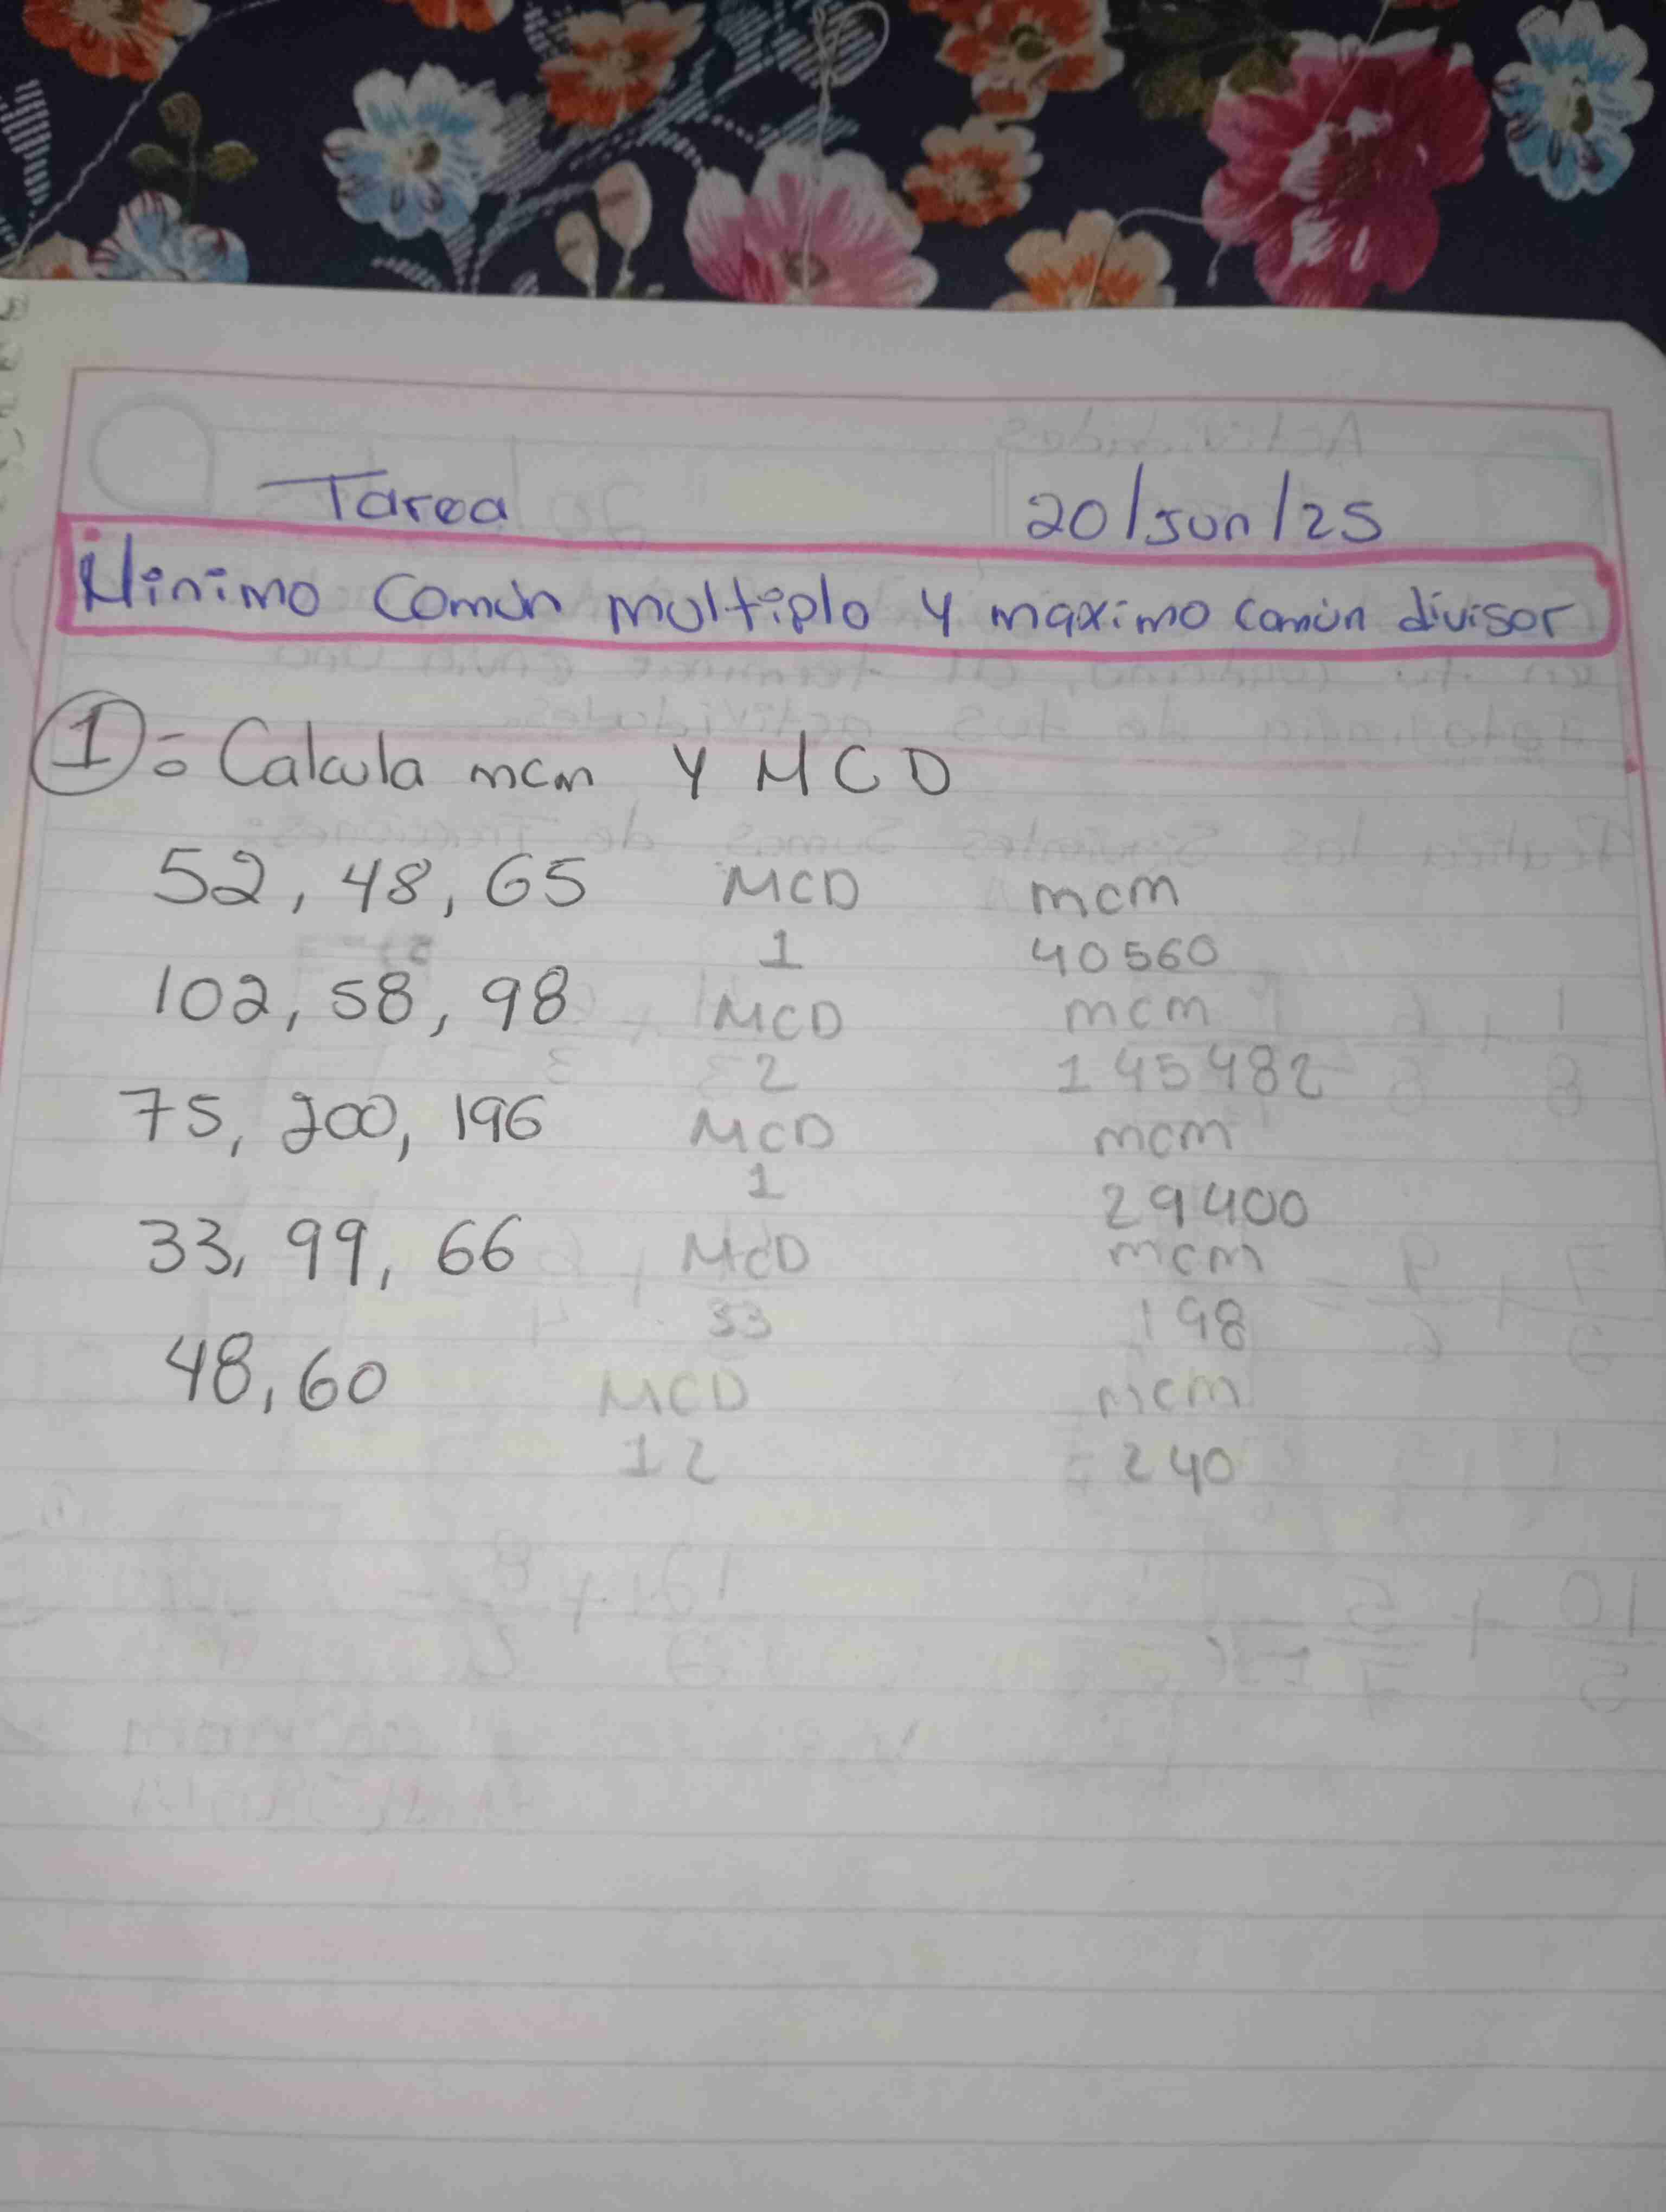 Tarea 20/Jun/25
Minimo Común multiplo y maximo común divisor
1 = Calcula mcm y MCD
52, 48, 65 MCD mcm
1 40560
102, 58, 98 MCD mcm
2 145482
75, 200, 196 MCD mcm
1 29400
33, 99, 66 MCD mcm
33 198
48, 60 MCD mcm
12 240